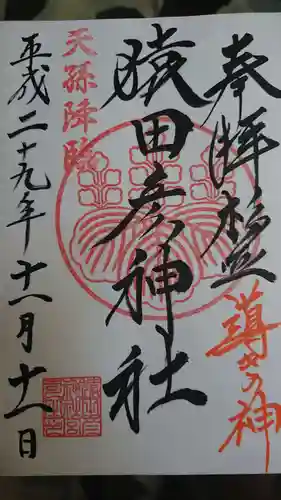 奉拝
導きの神
猿田彦神社
天孫降臨
平成二十九年十一月十一日